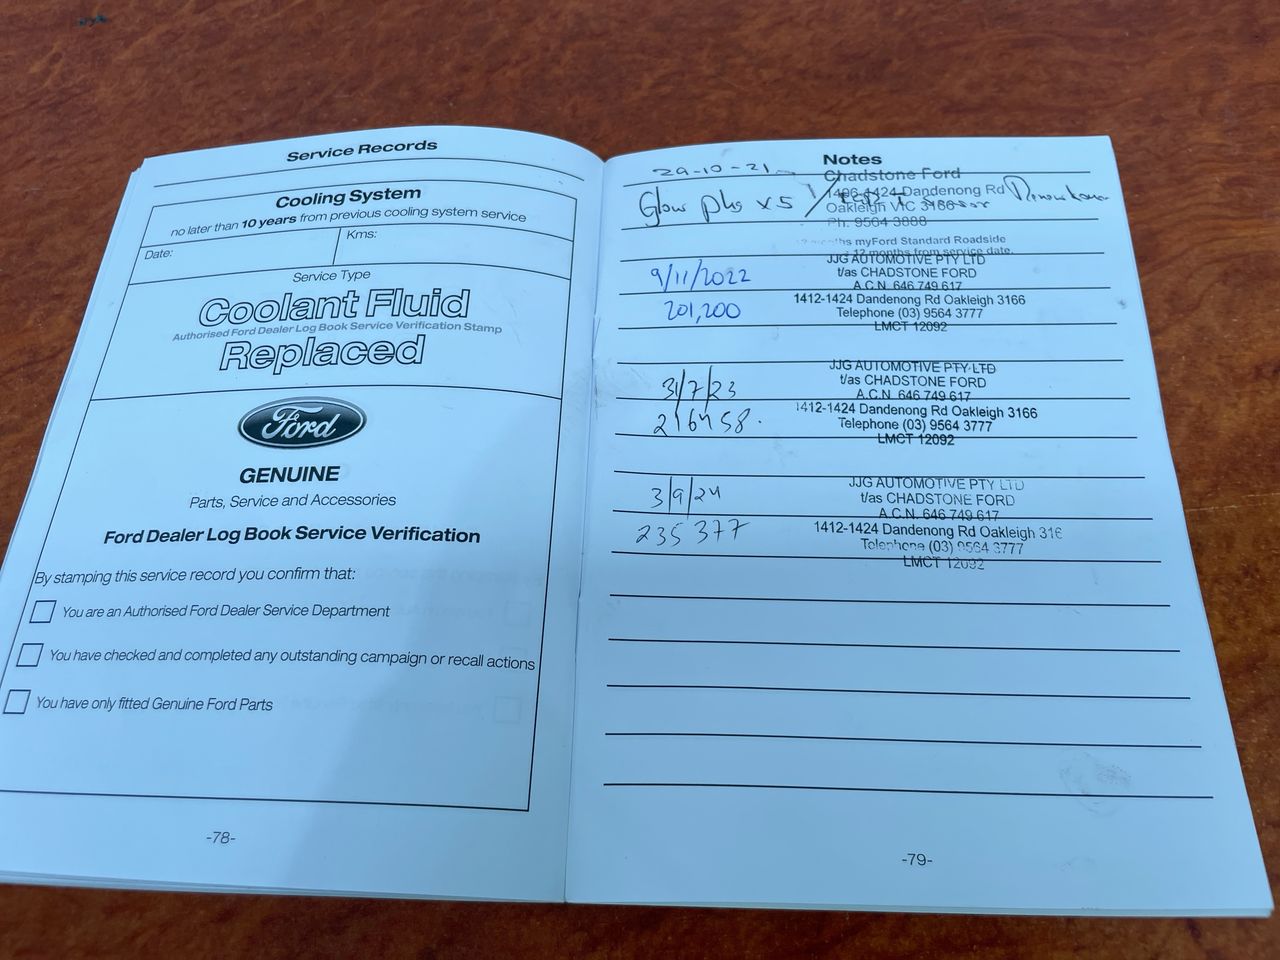 Service Records
Cooling System
no later than 10 years from previous cooling system service
Date:
Kms:
Service Type
Coolant Fluid
Authorised Ford Dealer Log Book Service Verification Stamp
Replaced
Ford
GENUINE
Parts, Service and Accessories
Ford Dealer Log Book Service Verification
By stamping this service record you confirm that:
You are an Authorised Ford Dealer Service Department
You have checked and completed any outstanding campaign or recall actions
You have only fitted Genuine Ford Parts
-78-
Notes
29-10-21
Chadstone Ford
Glow plug x5 /
1406-1424 Dandenong Rd
Oakleigh VIC 3166
Ph. 9564 3888
months myFord Standard Roadside
12 months from service date.
9/11/2022
201,200
JJG AUTOMOTIVE PTY LTD
t/as CHADSTONE FORD
A.C.N. 646 749 617
1412-1424 Dandenong Rd Oakleigh 3166
Telephone (03) 9564 3777
LMCT 12092
31/7/23
216458.
JJG AUTOMOTIVE PTY LTD
t/as CHADSTONE FORD
A.C.N. 646 749 617
1412-1424 Dandenong Rd Oakleigh 3166
Telephone (03) 9564 3777
LMCT 12092
3/9/24
235377
JJG AUTOMOTIVE PTY LTD
t/as CHADSTONE FORD
A.C.N. 646 749 617
1412-1424 Dandenong Rd Oakleigh 316
Telephone (03) 9564 3777
LMCT 12092
-79-